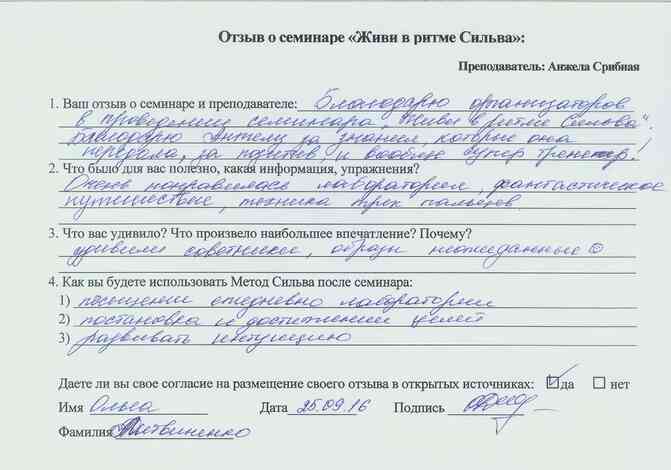 Отзыв о семинаре «Живи в ритме Сильва»:
Преподаватель: Анжела Срибная
1. Ваш отзыв о семинаре и преподавателе: Благодарю организаторов
в проведении семинара „Живи в ритме Сильва".
Благодарю Анжелу за знания, которые она
передала, за позитив и вообще супер тренер!
2. Что было для вас полезно, какая информация, упражнения?
Очень понравилась лаборатория, фантастическое
путешествие, техника трех пальцев.
3. Что вас удивило? Что произвело наибольшее впечатление? Почему?
удивили советники, образы неожиданные ☺
4. Как вы будете использовать Метод Сильва после семинара:
1) посещении ежедневно лаборатории
2) постановка и достижении целей
3) развивать интуицию
Даете ли вы свое согласие на размещение своего отзыва в открытых источниках: ☑ да ☐ нет
Имя Ольга Дата 25.09.16 Подпись
Фамилия Литвиненко